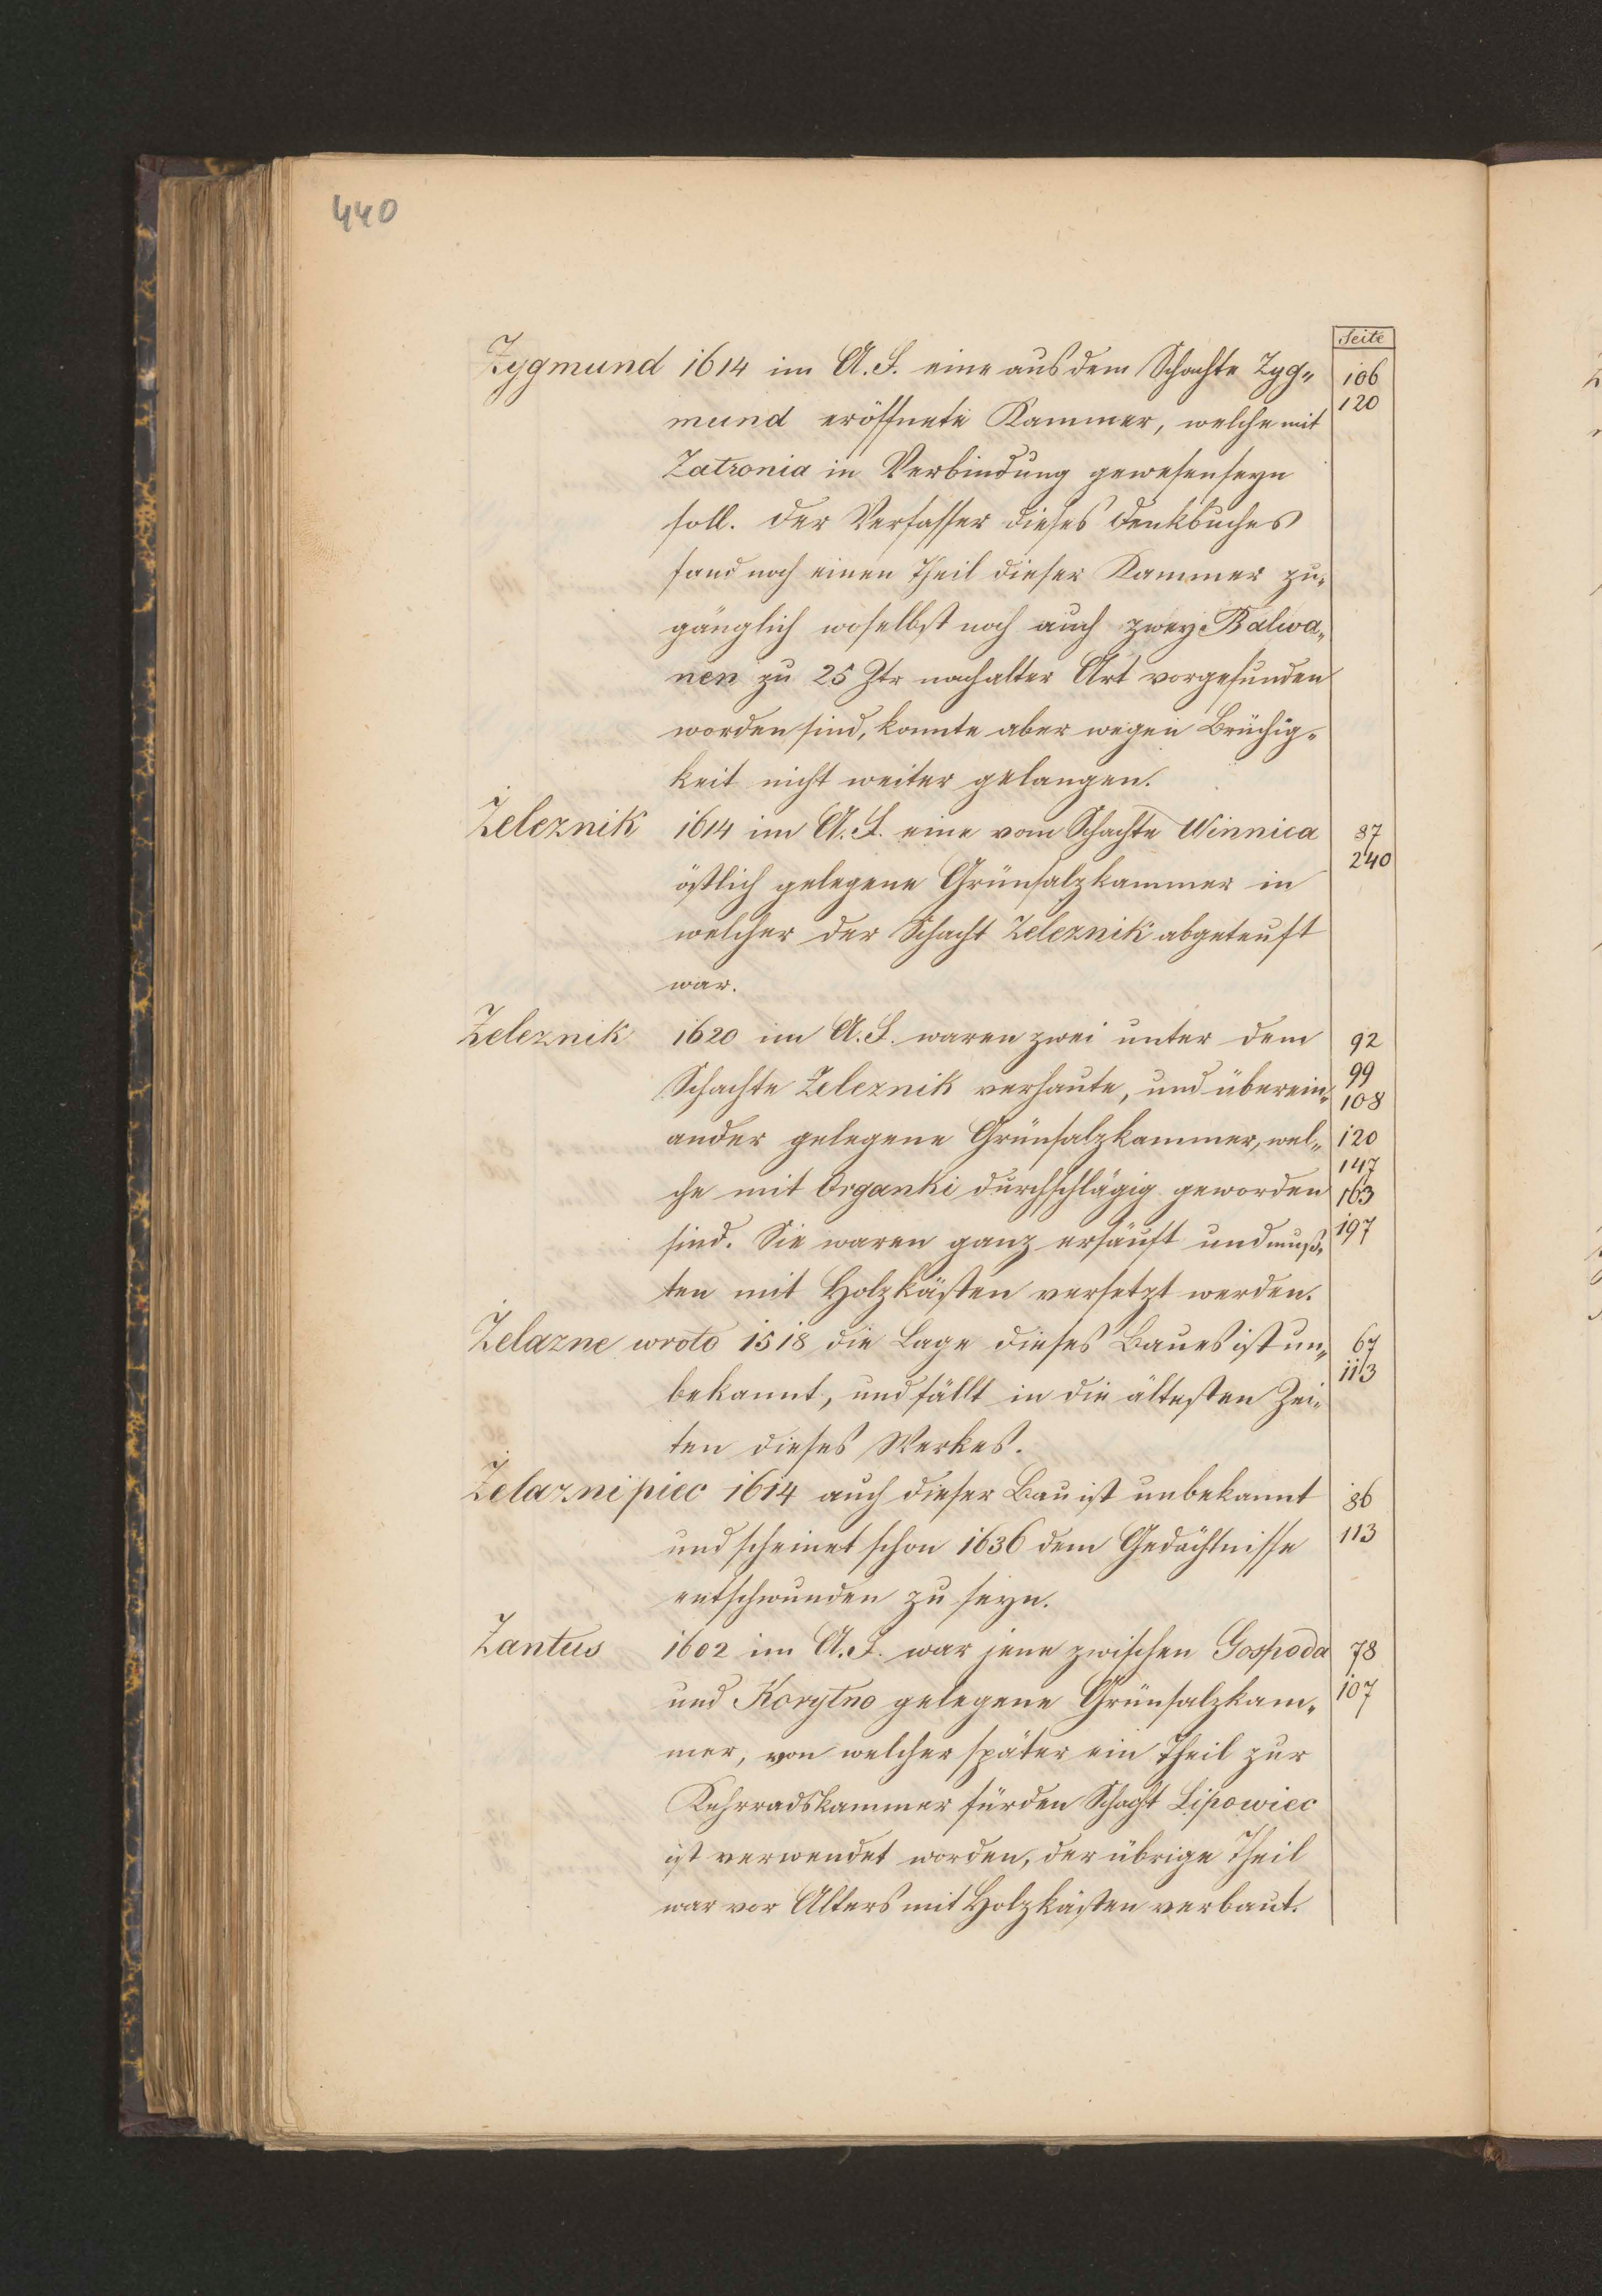 440
Seite
Zygmund 1614 im A. F. eine aus dem Schachte Zyg„ 106
mund eröffnete Kammer, welche mit 120
Zatronia in Verbindung gewesen seyn
soll. Der Verfasser dieses Denkbuches
fand noch einen Theil dieser Kammer zu„
gänglich woselbst noch auch zwey Balwa„
nen zu 25 Ztr nach alter Art vorgefunden
worden sind, konnte aber wegen Brüchig„
keit nicht weiter gelangen.
Żeleznik 1614 im A. F. eine vom Schachte Winnica 87
östlich gelegene Grünsalzkammer in 240
welcher der Schacht Zeleznik abgeteuft
war.
Zeleznik 1620 im A. F. waren zwei unter dem 92
Schachte Zeleznik verhaute, und überein„ 99 108
ander gelegene Grünsalzkammer, wel„ 120
che mit Organki durchschlägig geworden 147 163
sind. Sie waren ganz ersäuft und muß„ 197
ten mit Holzkästen versetzt werden.
Żelazne wroto 1518 die Lage dieses Baues ist un„ 67
bekannt, und fällt in die ältesten Zei„ 113
ten dieses Werkes.
Żelazni piec 1614 auch dieser Bau ist unbekannt 86
und scheinet schon 1636 dem Gedächtnisse 113
entschwunden zu seyn.
Zantus 1602 im A. F. war jene zwischen Gospoda 78
und Korytno gelegene Grünsalzkam„ 107
mer, von welcher später ein Theil zur
Kehrradskammer für den Schacht Lipowiec
ist verwendet worden, der übrige Theil
war vor Alters mit Holzkästen verbaut.